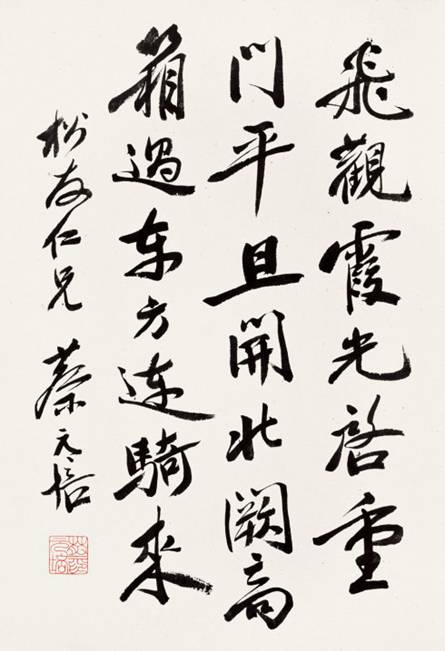 飛觀霞光啓重
門平旦開北闕高
箱過東方連騎來
松友仁兄 蔡元培